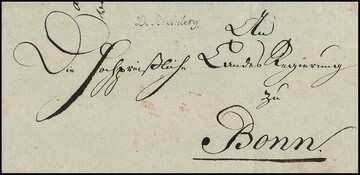 D. Rheinberg.
An
Die Hochpreißliche Landes Regierung
zu
Bonn.